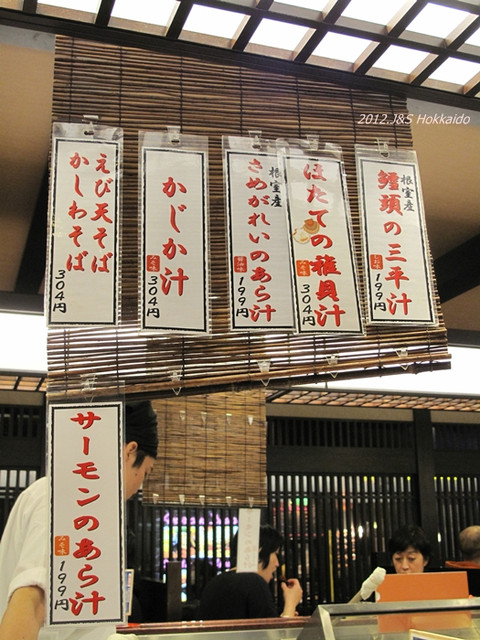 2012.J&S Hokkaido
えび天そば
かしわそば
304円
かじか汁
みそ味
304円
根室産
さめがれいのあら汁
199円
ほたての稚貝汁
みそ味
304円
根室産
鱈頭の三平汁
199円
サーモンのあら汁
みそ味
199円